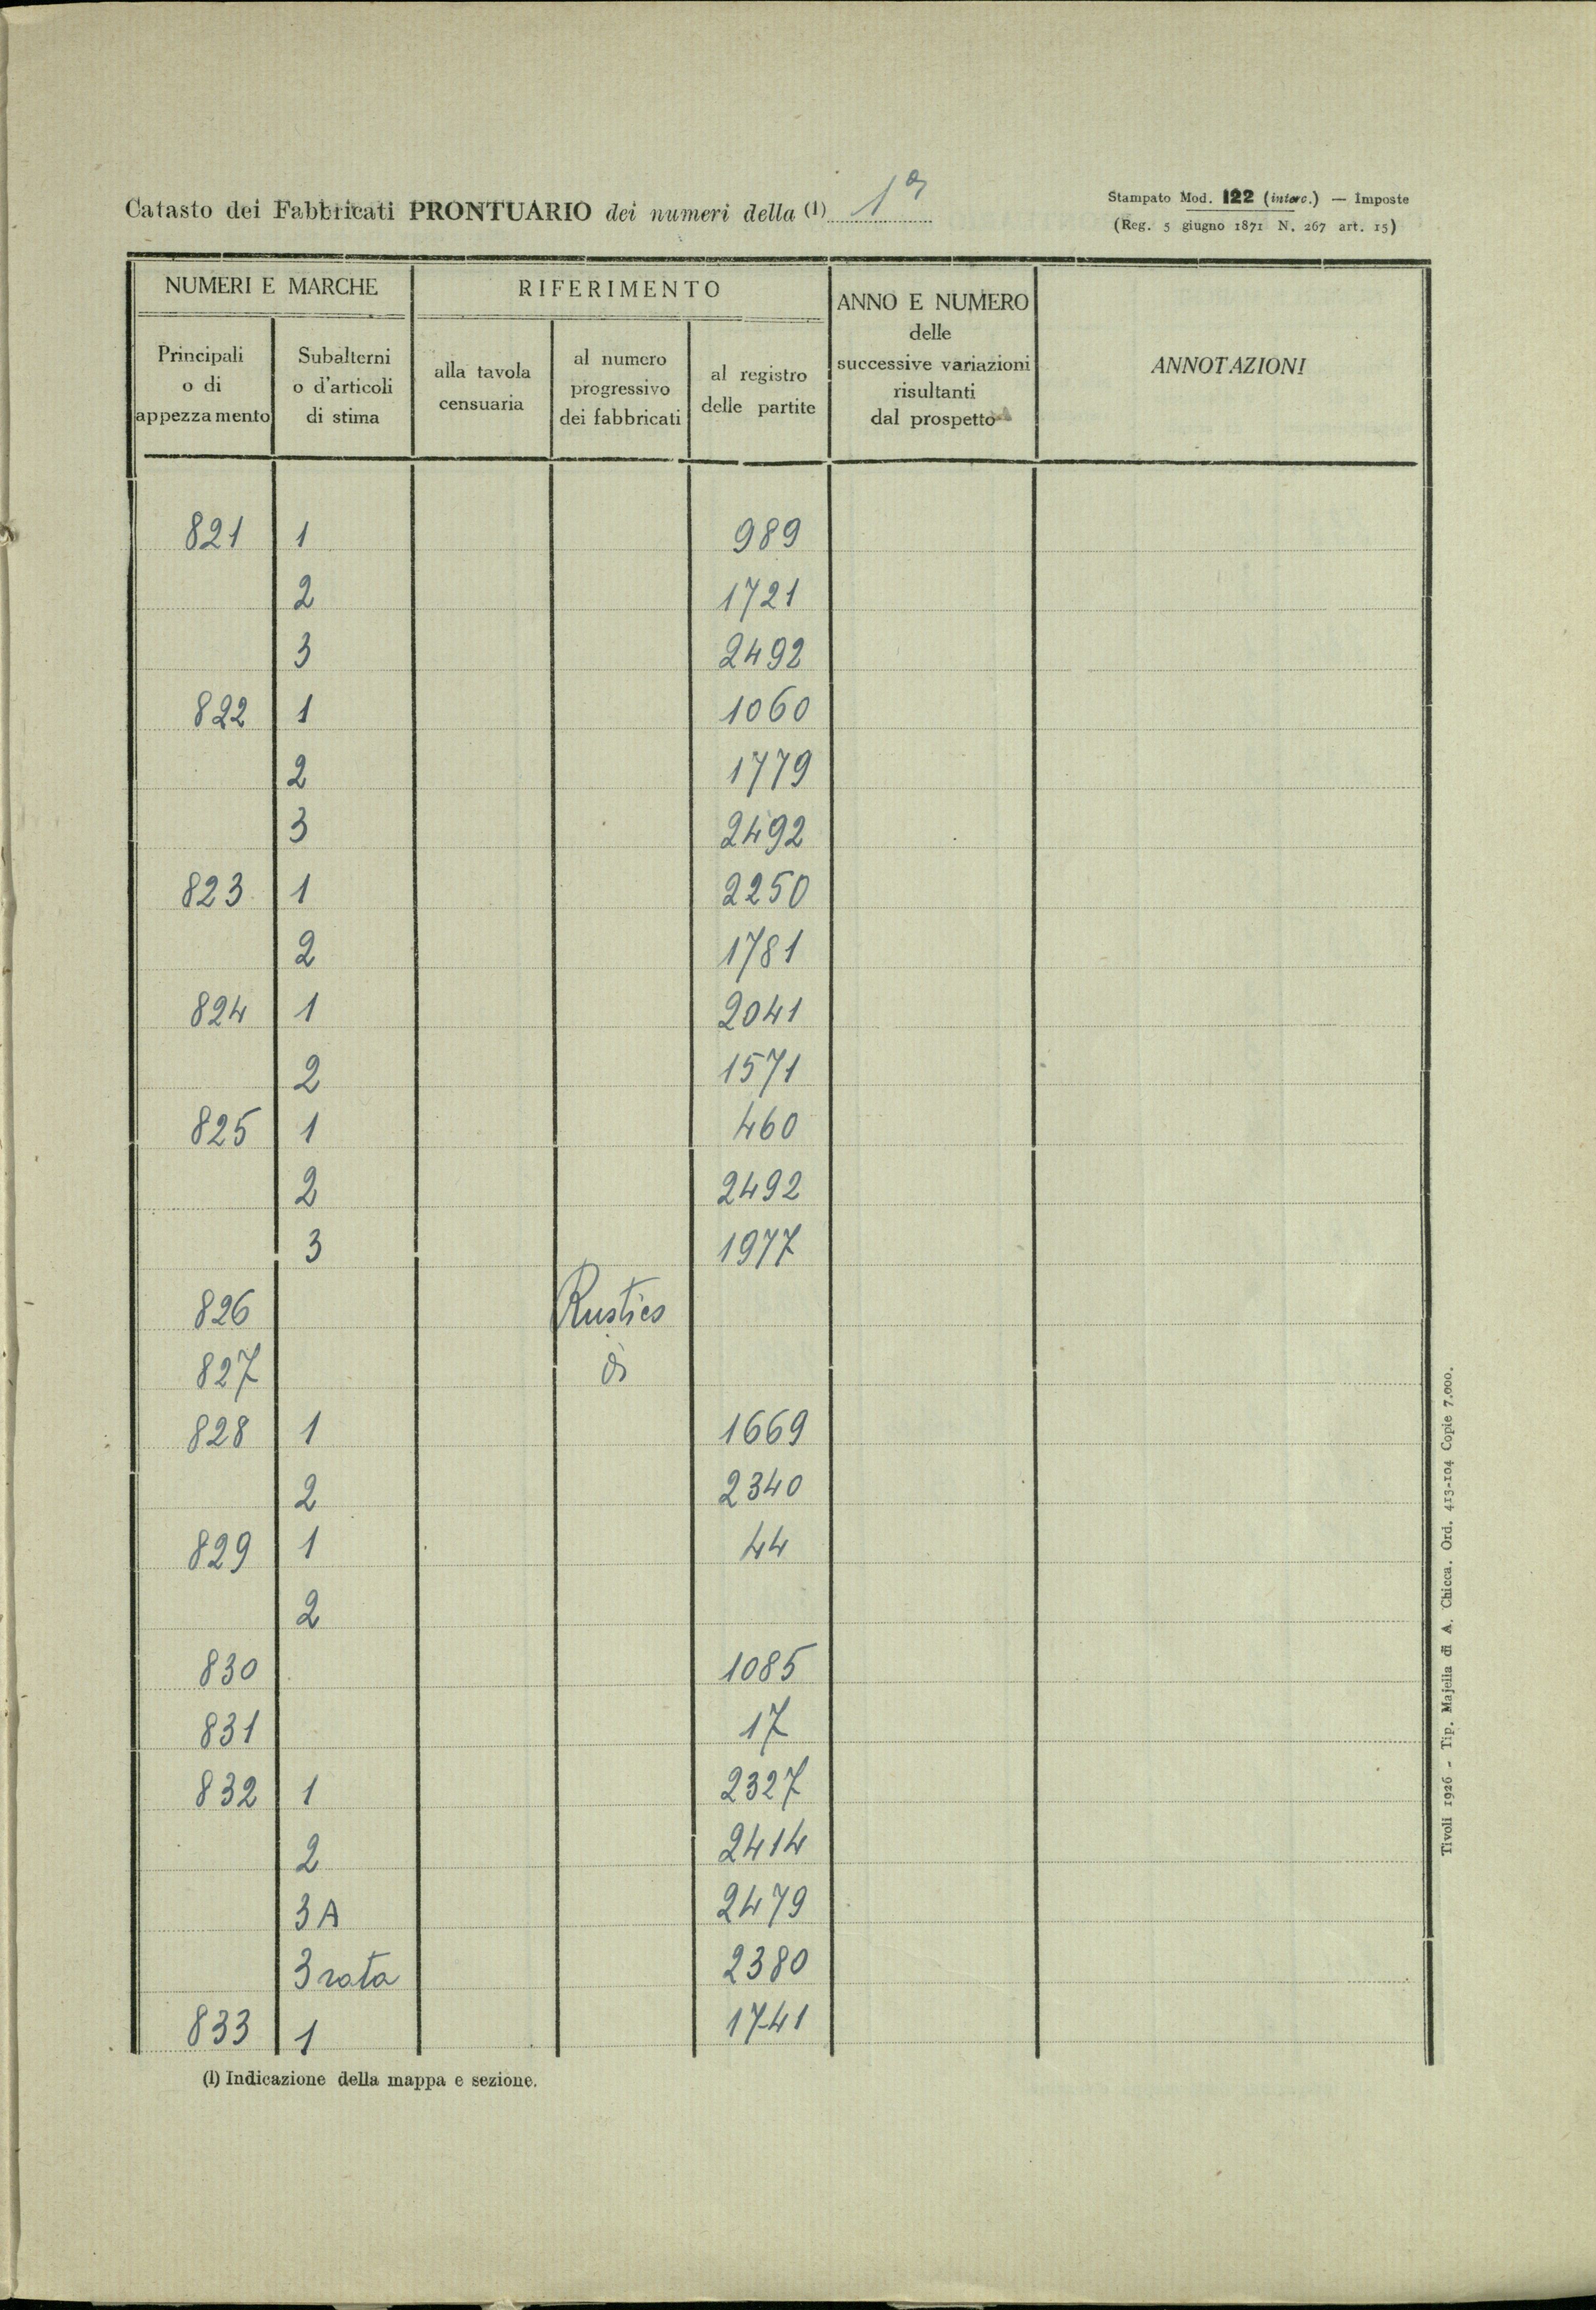 Catasto dei Fabbricati PRONTUARIO dei numeri della (1) 1ª
Stampato Mod. 122 (interc.) — Imposte
(Reg. 5 giugno 1871 N. 267 art. 15)
NUMERI E MARCHE
RIFERIMENTO
ANNO E NUMERO
delle
successive variazioni
risultanti
dal prospetto
ANNOTAZIONI
Principali
o di
appezzamento
Subalterni
o d'articoli
di stima
alla tavola
censuaria
al numero
progressivo
dei fabbricati
al registro
delle partite
821 1 989
2 1721
3 2492
822 1 1060
2 1779
3 2492
823 1 2250
2 1781
824 1 2041
2 1571
825 1 460
2 2492
3 1977
826 Rustico
827
828 1 1669
2 2340
829 1 44
2
830 1085
831 17
832 1 2327
2 2414
3 A 2479
3 rata 2380
833 1 1741
(1) Indicazione della mappa e sezione.
Tivoli 1926 - Tip. Majella di A. Chicca. Ord. 413-104 Copie 7.000.